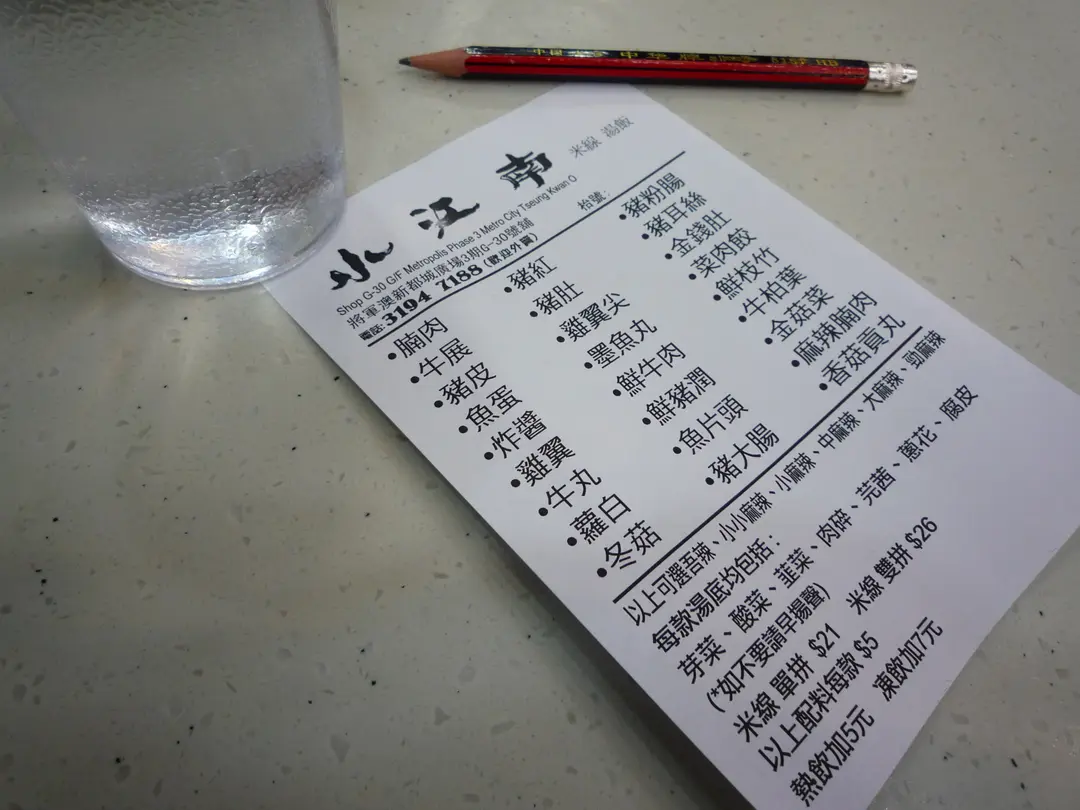 中華牌
小江南 米線 湯飯
Shop G-30 G/F Metropolis Phase 3 Metro City Tseung Kwan O
將軍澳新都城廣場3期G-30號舖 枱號:
電話:3194 7188 (歡迎外賣)
•腩肉
•牛展
•豬皮
•魚蛋
•炸醬
•雞翼
•牛丸
•蘿白
•冬菇
•豬紅
•豬肚
•雞翼尖
•墨魚丸
•鮮牛肉
•鮮豬潤
•魚片頭
•豬大腸
•豬粉腸
•豬耳絲
•金錢肚
•菜肉餃
•鮮枝竹
•牛柏葉
•金菇菜
•麻辣腩肉
•香菇貢丸
以上可選吾辣、小小麻辣、小麻辣、中麻辣、大麻辣、勁麻辣
每款湯底均包括:
芽菜、酸菜、韮菜、肉碎、芫茜、蔥花、腐皮
(*如不要請早揚聲)
米線 單拼 $21 米線 雙拼 $26
以上配料每款 $5
熱飲加5元 凍飲加7元